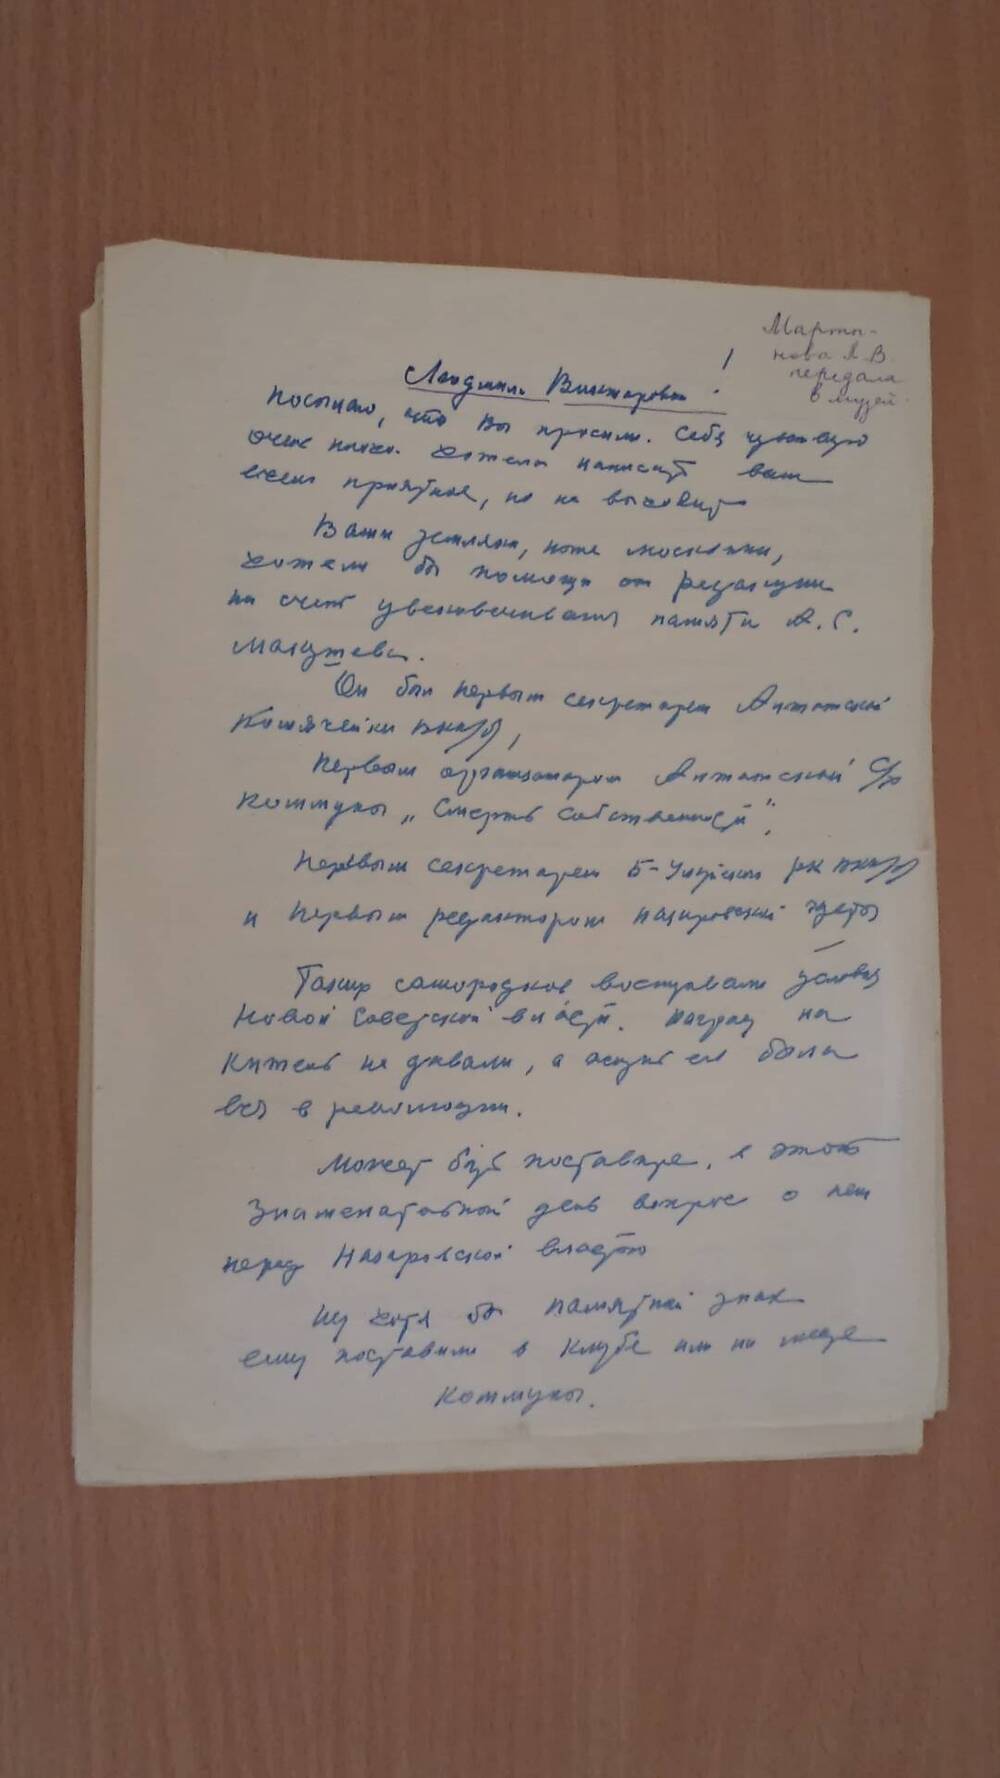 Марты-
нова Л.В.
передала
в музей.
Людмила Викторовна!
Посылаю, что Вы просили. Себя чувствую
очень плохо. Хотела написать вам
приятное, но не выходит
Ваши земляки, ныне москвичи,
хотели бы помощи от редакции
на счет увековечивания памяти А.С.
Он был первым секретарем Алтатской
Комячейки ВКП/б/,
Первым организатором Алтатской с/х
коммуны „Смерть собственности",
Первым секретарем Б-Улуйского РК ВКП/б/
и первым редактором назаровской газеты
Таких самородков воспитывали условия
новой Советской власти. Наград на
китель не давали, а жизнь его была
вся в революции.
Может быть поставите, в этот
знаменательный день вопрос о нем
перед Назаровской властью
Ну хотя бы памятный знак
ему поставили в клубе или на месте
Коммуны.